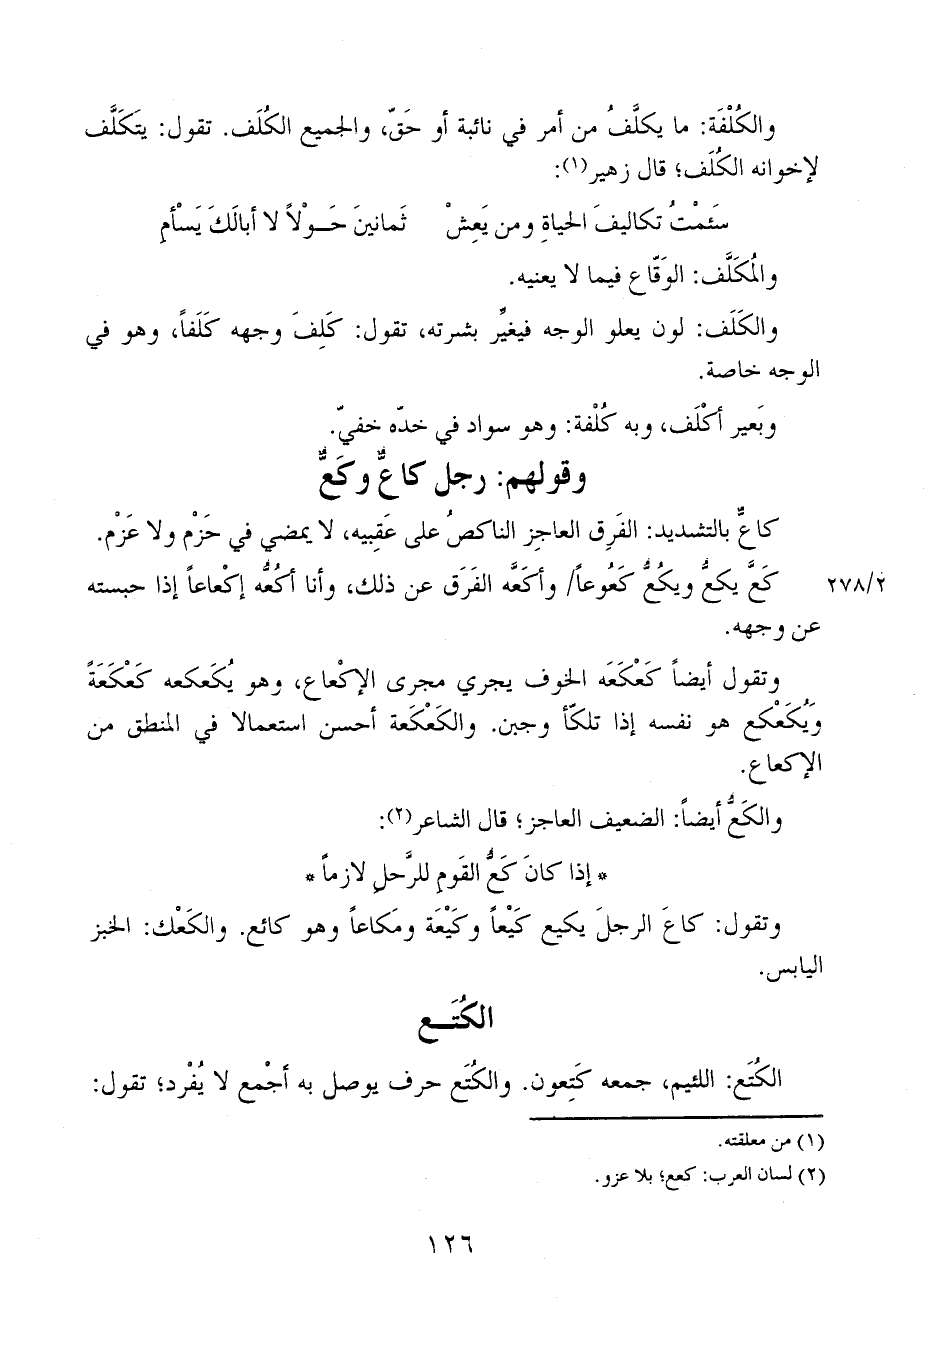 والكُلْفَة: ما يكلَّفُ من أمر في نائبة أو حَقّ، والجميع الكُلَف. تقول: يتَكَلَّف
لإخوانه الكُلَف؛ قال زهير(١):
سَئمْتُ تكاليفَ الحياةِ ومن يَعِشْ ثَمانينَ حَـوْلاً لا أبالَكَ يَسْأمِ
والمُكَلَّف: الوَقّاع فيما لا يعنيه.
والكَلَف: لون يعلو الوجه فيغيِّر بشرته، تقول: كَلِفَ وجهه كَلَفاً، وهو في
الوجه خاصة.
وبَعير أكْلَف، وبه كُلْفة: وهو سواد في خدّه خفيّ.
وقولهم: رجل كاعٌّ وكَعٌّ
كاعٌّ بالتشديد: الفَرِق العاجز الناكصُ على عَقِبيه، لا يمضي في حَزْم ولا عَزْم.
٢٧٨/٢ كَعَّ يكعُّ ويكُعُّ كَعُوعاً/ وأكَعَّه الفَرَق عن ذلك، وأنا أكُعُّه إكْعاعاً إذا حبسته
عن وجهه.
وتقول أيضاً كَعْكَعَه الخوف يجري مجرى الإكْعاع، وهو يُكَعكعه كَعْكَعَةً
ويُكَعْكع هو نفسه إذا تلكّأ وجبن. والكَعْكَعة أحسن استعمالا في المنطق من
الإكعاع.
والكَعُّ أيضاً: الضعيف العاجز؛ قال الشاعر(٢):
* إذا كانَ كَعُّ القَومِ للرَّحلِ لازماً *
وتقول: كاعَ الرجلَ يكيع كَيْعاً وكَيْعَة ومَكاعاً وهو كائع. والكَعْك: الخبز
اليابس.
الكُتَـع
الكُتَع: اللئيم، جمعه كَتِعون. والكُتَع حرف يوصل به أجْمع لا يُفْرد؛ تقول:
(١) من معلقته.
(٢) لسان العرب: كعع؛ بلا عزو.
١٢٦